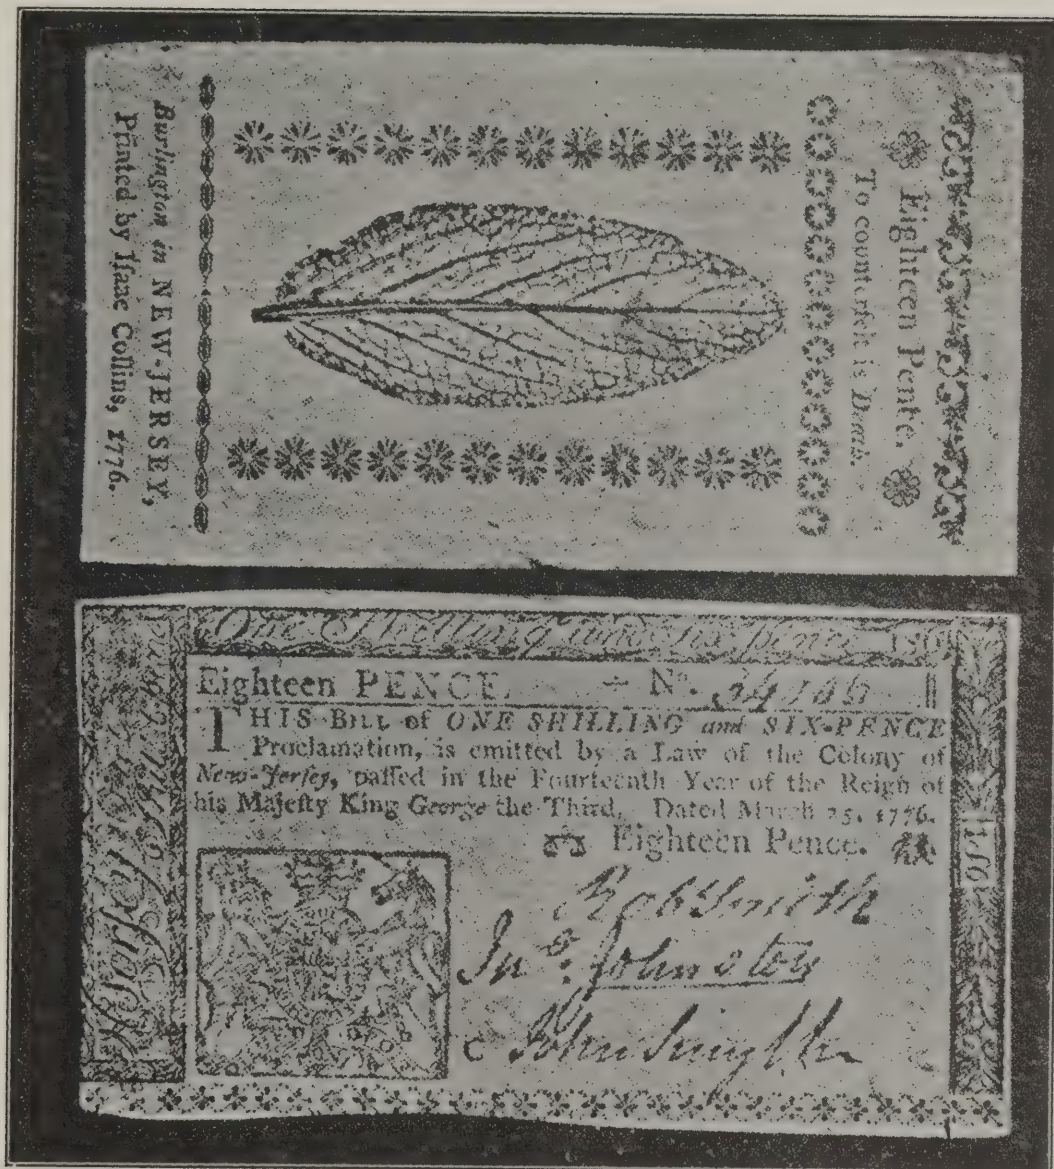 Eighteen Pence.
To counterfeit is Death.
Burlington in NEW-JERSEY,
Printed by Isaac Collins, 1776.
One Shilling and six pence
Eighteen PENCE. No.
THIS Bill of ONE SHILLING and SIX-PENCE
Proclamation, is emitted by a Law of the Colony of
New-Jerſey, paſſed in the Fourteenth Year of the Reign of
his Majeſty King George the Third. Dated March 25, 1776.
Eighteen Pence.
Rob Smith
Jno. Johnston
John Smyth